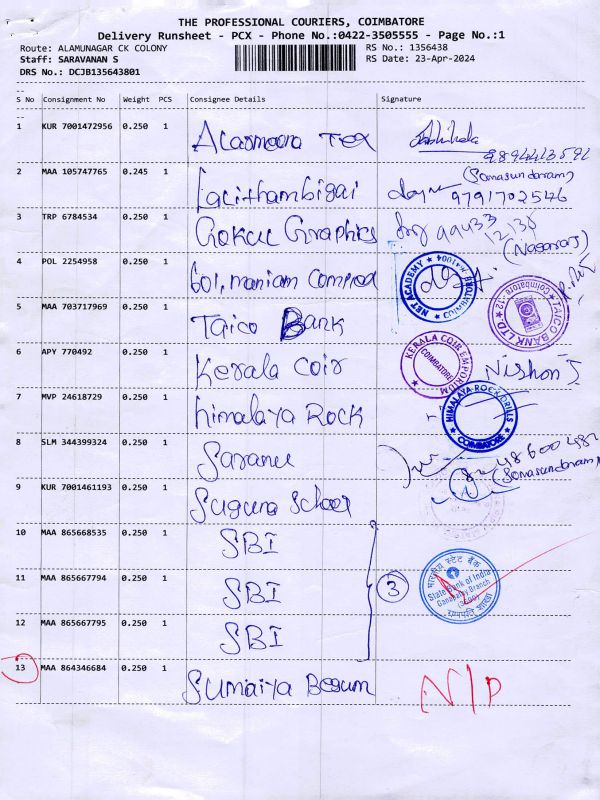 THE PROFESSIONAL COURIERS, COIMBATORE
Delivery Runsheet - PCX - Phone No.:0422-3505555 - Page No.:1
Route: ALAMUNAGAR CK COLONY
RS No.: 1356438
Staff: SARAVANAN S
RS Date: 23-Apr-2024
DRS No.: DCJB135643801
S No Consignment No Weight PCS Consignee Details Signature
1 KUR 7001472956 0.250 1 Tex
2 MAA 105747765 0.245 1 Lalithambigai (Somasundaram) 9791702546
3 TRP 6784534 0.250 1 Gokul Graphics (Nagaraj)
4 POL 2254958 0.250 1
NET ACADEMY COIMBATORE
5 MAA 703717969 0.250 1 Taico Bank
TAICO BANK LTD. Coimbatore -12
6 APY 770492 0.250 1 Kerala Coir
KERALA COIR EMPORIUM COIMBATORE
7 MVP 24618729 0.250 1 Himalaya Rock
HIMALAYA ROCK DRILLS COIMBATORE
8 SLM 344399324 0.250 1
9 KUR 7001461193 0.250 1 Suguna School (Somasundaram)
10 MAA 865668535 0.250 1 SBI
11 MAA 865667794 0.250 1 SBI 3
भारतीय स्टेट बैंक
State Bank of India
Ganapathy Branch
12 MAA 865667795 0.250 1 SBI
13 MAA 864346684 0.250 1 Sumaiya Begum N/P